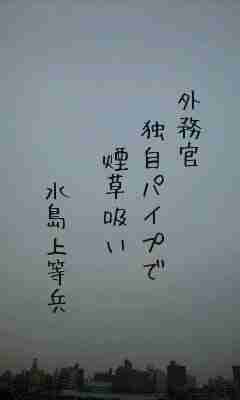 外務官
独自パイプで
煙草吸い
水島上等兵